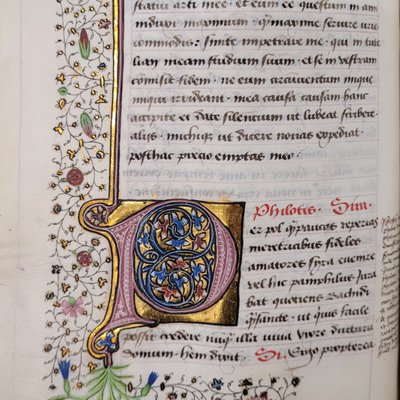 statui arti mee · et eum ee questum in anim
induxi maximum · q̃maxime servire vr̃is
commodis: sinite impetrare me, qui in tute
lam meam studium suum · et se in vestram
comisit fidem · ne eum circuventum inique
iniqui irrideant · mea causa causam hanc
accipite et date silencium ut lubeat scribere
aliis michiq; ut dicere novas expediat
posthac precio emptas meo·
Philotis · Sira·
P er pol q̃paucos reperias
meretricibus fideles
amatores syra
vel hic pamphilus jura
bat quotiens Bachidi
q̃sancte · ut quis facile
possit credere nuq̃ illa viva uxore ducturu
domum · hem duxit · Si · Ergo propterea